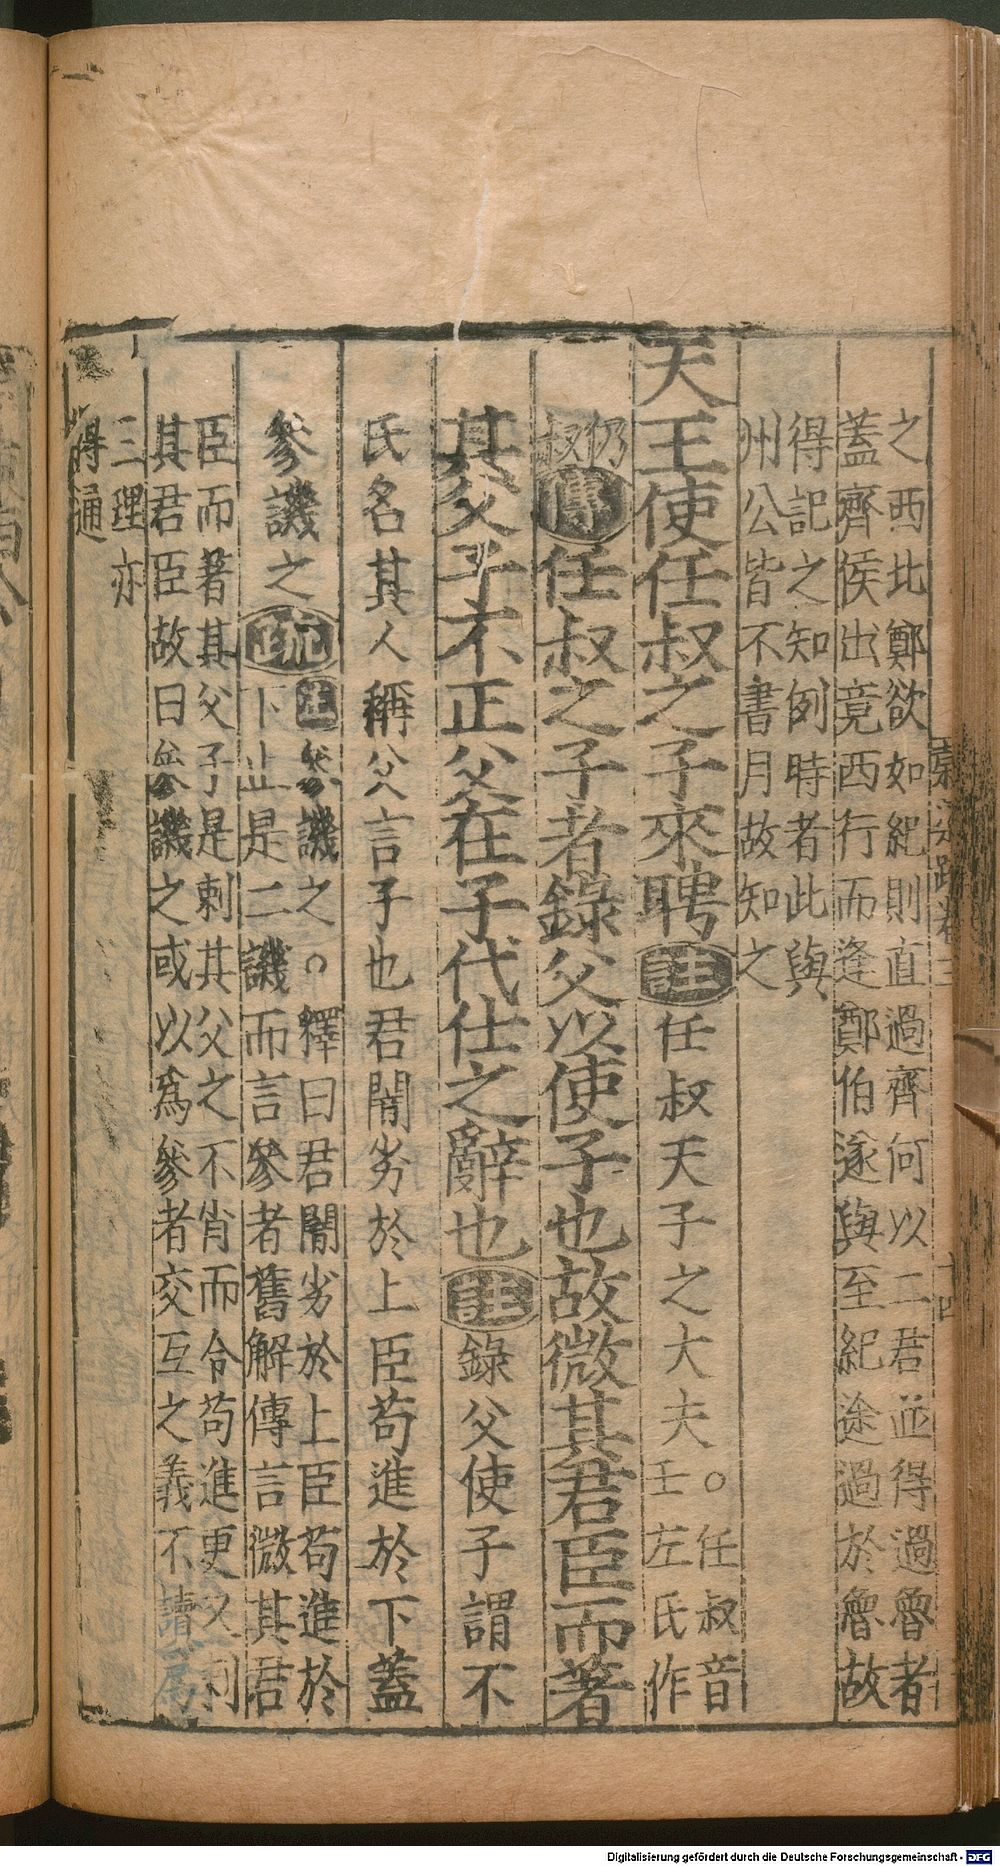 之西北鄭欲如紀則直過齊何以二君並得過魯者
蓋齊侯出竟西行而逢鄭伯遂與至紀途過於魯故
得記之知例時者此與
州公皆不書月故知之
天王使任叔之子來聘註任叔天子之大夫。任叔音
壬左氏作
仍
叔傳任叔之子者錄父以使子也故微其君臣而著
其父子不正父在子代仕之辭也註錄父使子謂不
氏名其人稱父言子也君闇劣於上臣苟進於下蓋
參譏之疏註參譏之。釋曰君闇劣於上臣苟進於
下止是二譏而言參者舊解傳言微其君
臣而著其父子是刺其父之不肖而令苟進更又刺
其君臣故曰參譏之或以為參者交互之義不讀為
三理亦
得通
Digitalisierung gefördert durch die Deutsche Forschungsgemeinschaft - DFG